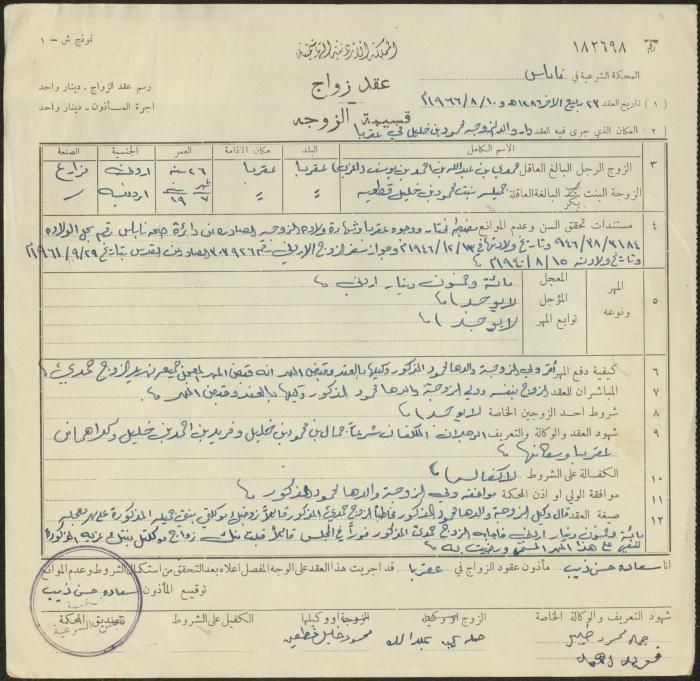 نموذج ش - ١
المملكة الأردنية الهاشمية
رقم ١٨٢٦٩٨
المحكمة الشرعية في نابلس
عقد زواج
رسم عقد الزواج - دينار واحد
اجرة المأذون - دينار واحد
قسيمة الزوجه
( ١ ) تاريخ العقد ٢٣ ربيع الآخر ١٣٨٦هـ و ١٠/٨/١٩٦٦م
( ٢ ) المكان الذي جرى فيه العقد دار والد الزوجه محمود بن خليل في عقربا
الاسم الكامل البلد مكان الاقامة العمر الجنسية الصنعة
٣ الزوج الرجل البالغ العاقل حمدي بن عبدالله بن احمد بن يوسف عقربا عقربا ٢٦ سنه اردنى مزارع
الزوجة البنت بكر البالغة العاقلة جميله بنت محمود بن خليل قطعيه " " شهر ٧ سنه ١٩ اردنيه
٤ مستندات تحقق السن وعدم الموانع مضبطه مختار ووجوه عقربا وشهادة ولادة الزوجه الصادره عن دائرة صحه نابلس رقم سجل الولاده
وتاريخ ولادتها في ١٣/١٢/١٩٤٦م وجواز سفر الزوج الاردني رقم ٣٠٧٩٢٦ الصادر عن القدس بتاريخ ٢٩/٩/١٩٦١م
وتاريخ ولادته ١٥/٨/١٩٤٠م
٥ المهر ونوعه
المعجل مائة وخمسون دينار اردني
المؤجل لا يوجد
توابع المهر لا يوجد
٦ كيفية دفع المهر أقر ولي الزوجة والدها محمود المذكور وكيلها بالعقد وقبض المهر انه قبض المهر المعجل جميعه من يد الزوج حمدي
٧ المباشران للعقد الزوج بنفسه وولي الزوجة والدها محمود المذكور وكيلها بالعقد وقبض المهر
٨ شروط احد الزوجين الخاصة لا يوجد
٩ شهود العقد والوكالة والتعريف المكلفان شرعا جمال بن محمود بن خليل وفريد بن احمد بن خليل وكلاهما من
عقربا وسكانها
١٠ الكفالة على الشروط لا كفاله
١١ موافقة الولي او اذن المحكمة موافقة ولي الزوجة والدها محمود المذكور
١٢ صفة العقد قال وكيل الزوجة والدها محمود المذكور مخاطبا الزوج حمدي المذكور قائلا زوجتك موكلتي بنتي جميله المذكورة على مهر معجله
مائة وخمسون دينار اردني فاجابه الزوج حمدي المذكور فورا في المجلس قائلا قبلت منك زواج موكلتك بنتك جميله المذكورة
لنفسي على هذا المهر المسمى ورضيت به
انا سعاده حسن ذيب مأذون عقود الزواج في عقربا قد اجريت هذا العقد على الوجه المفصل اعلاه بعد التحقق من استكمال الشروط وعدم الموانع
توقيع المأذون سعاده حسن ذيب
شهود التعريف والوكالة الخاصة
الزوج او وكيله
الزوجة او وكيلها
الكفيل على الشروط
تصديق المحكمة
عبد الله
محمود خليل قطعيه